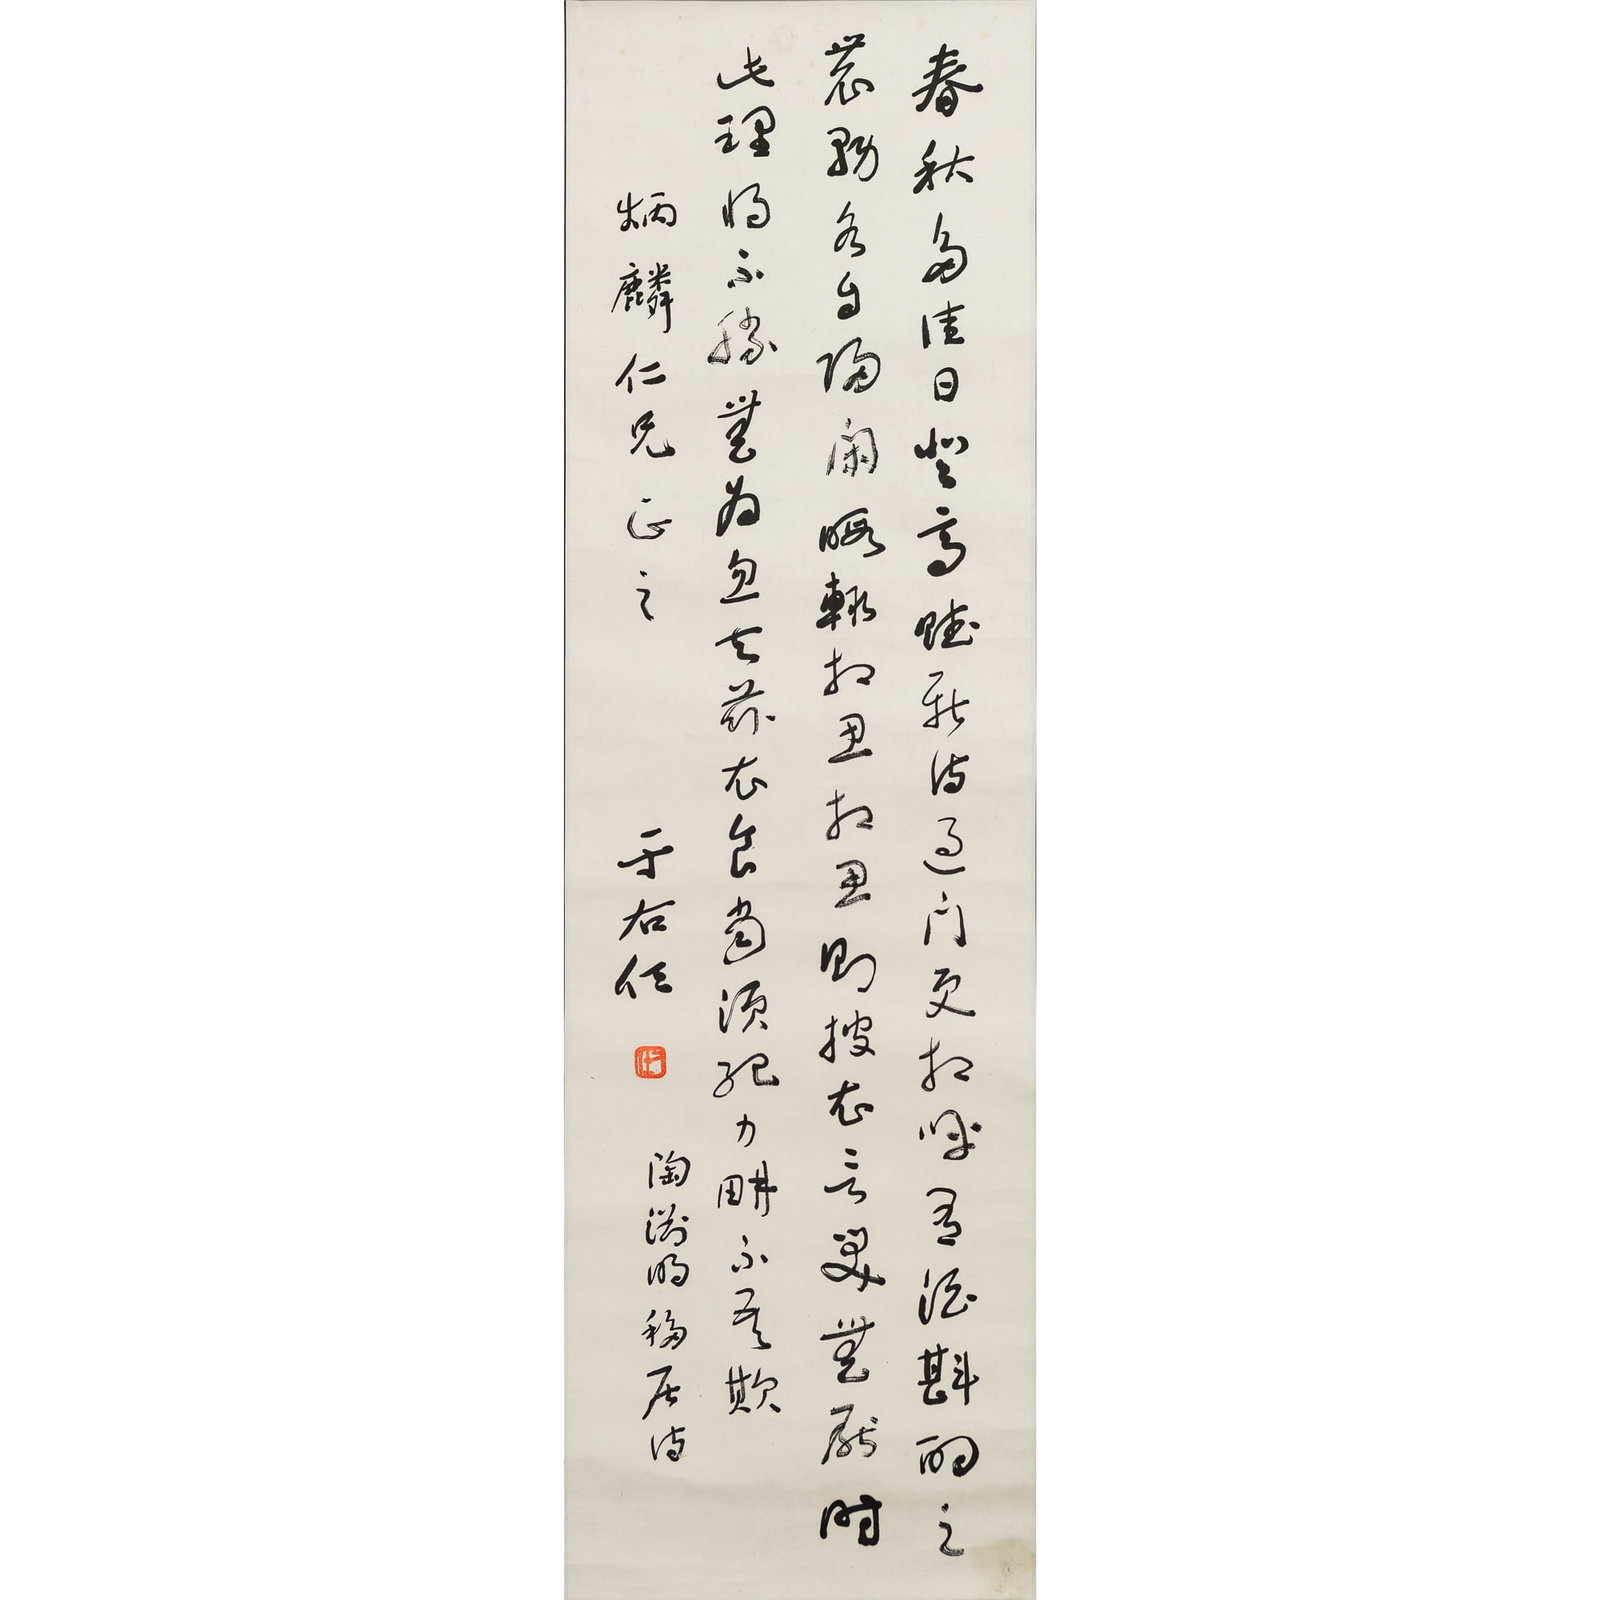 春秋多佳日登高賦新詩過門更相呼有酒斟酌之
農務各自歸閒暇輒相思相思則披衣言笑無厭時
此理將不勝無為忽去茲衣食當須紀力耕不吾欺
炳麟仁兄正之
于右任
陶淵明移居詩